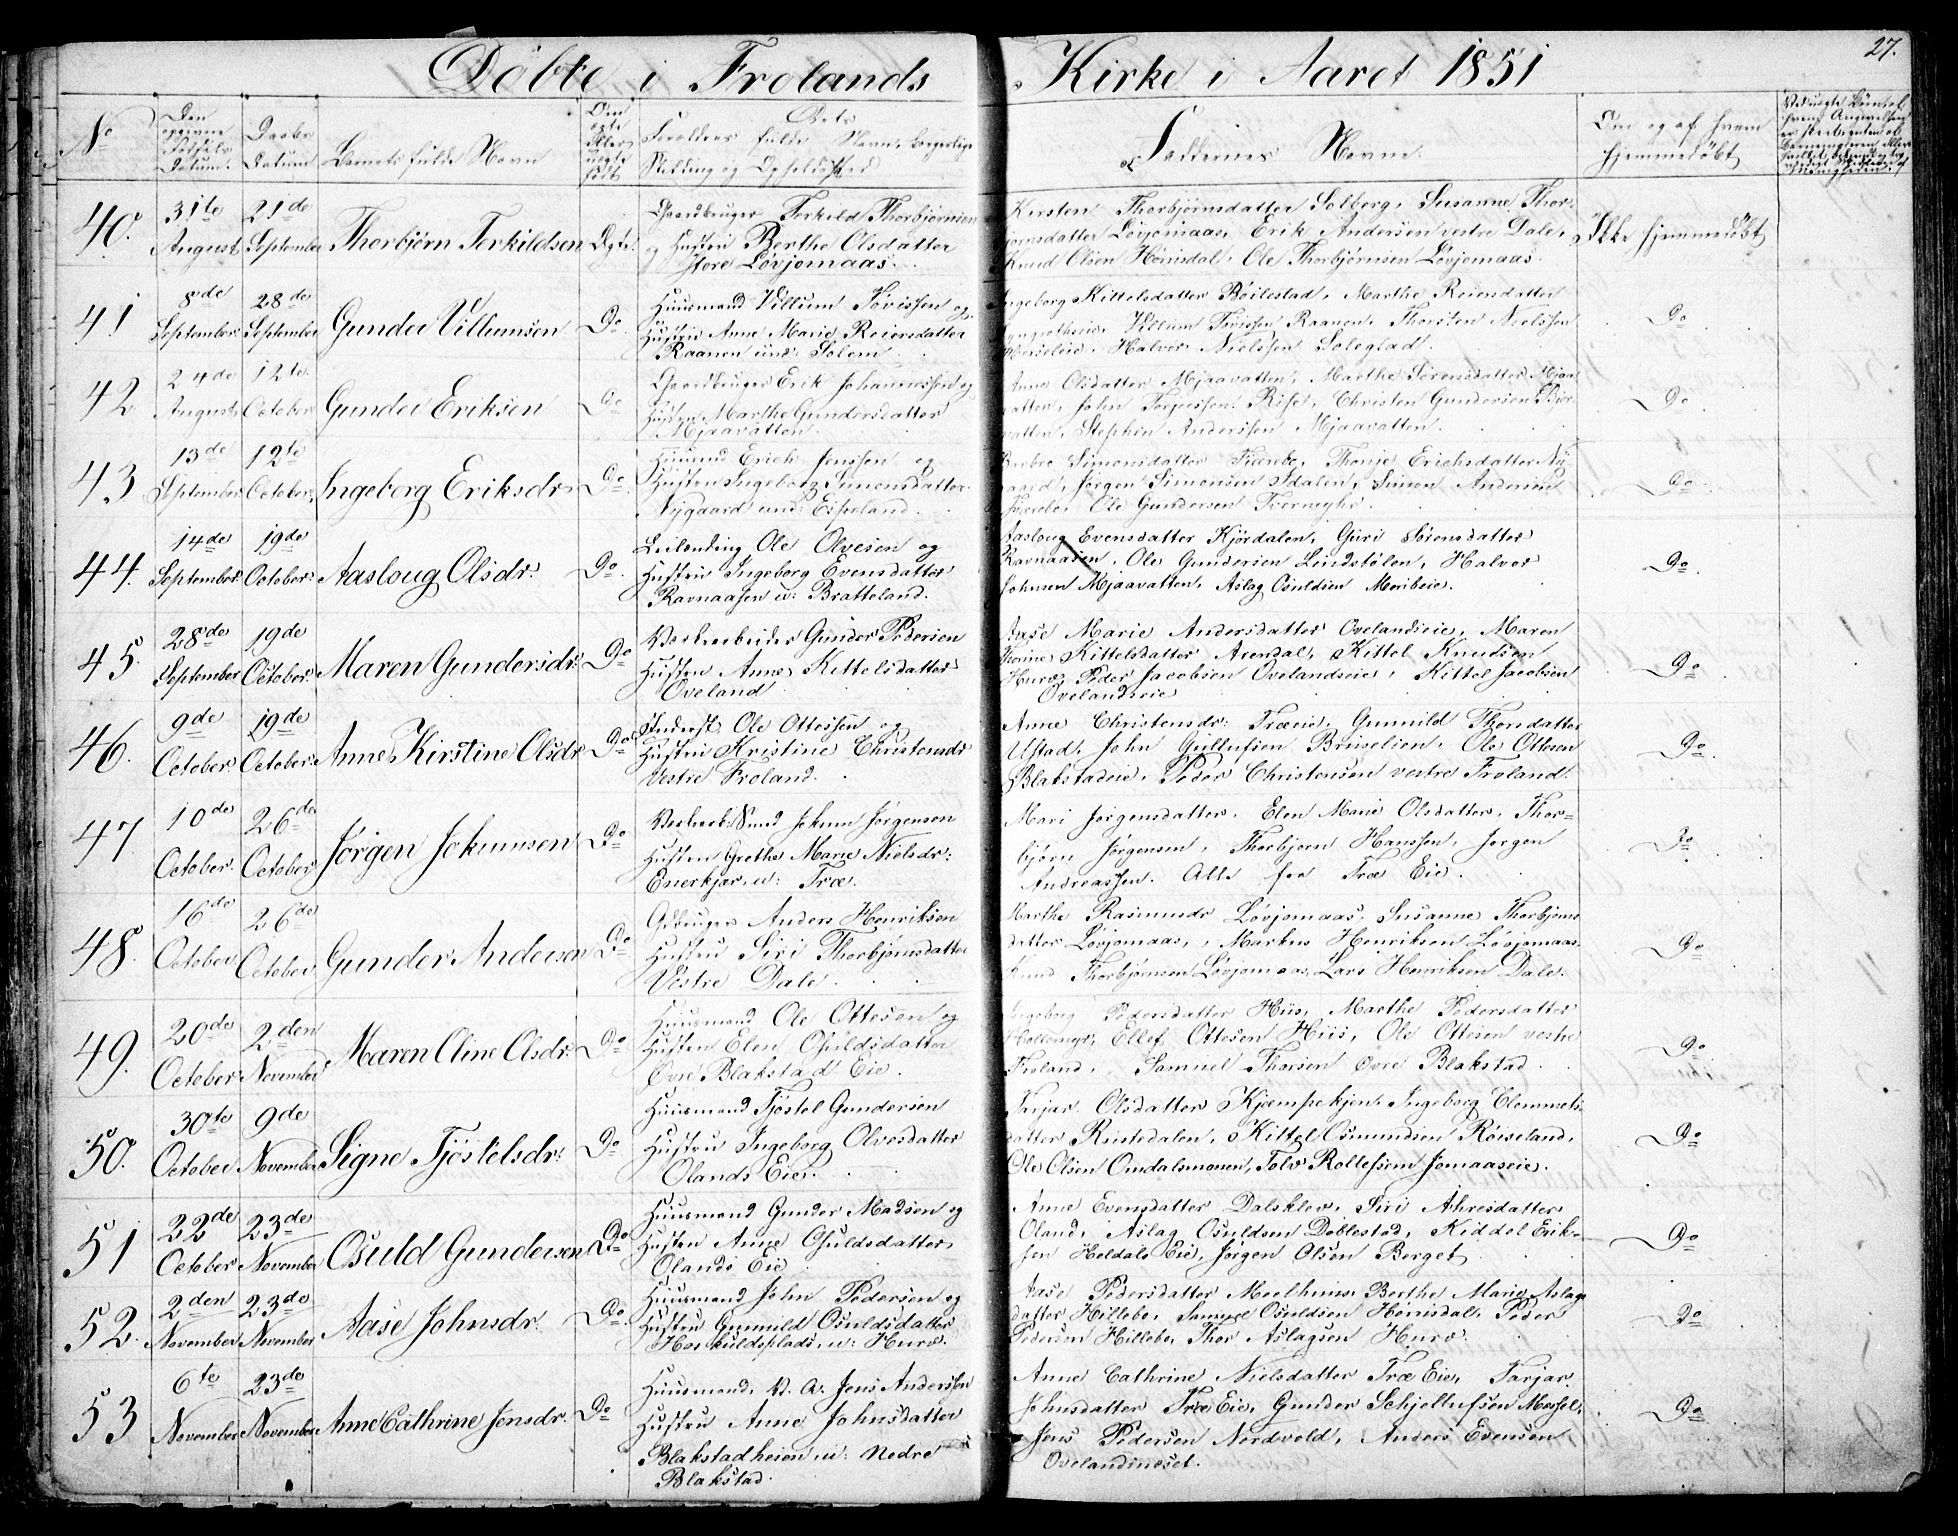 27.
Döbte i Frolands Kirke i Aaret 1851
No
Den opgivne Födsels Datum.
Daabs Datum
Barnets fulde Navn
Om ægte eller uægte födt
Forældres fulde Navn, borgerlige Stilling og Opholdssted
Faddernes Navne.
Om og af hvem hjemmedöbt
40. 31te August 21de September Thorbjörn Terkildsen Ægte.
Gaardbruger Terkild Thorbjörnsen
og Hustru Berthe Olsdatter
Store Løvjomaas.
Kirsten Thorbjörnsdatter Solberg, Susanne Thor-
jörnsdatter Løvjomaas, Erik Andersen vestre Dale,
Knud Olsen Hörnsdal, Ole Thorbjörnsen Løvjomaas.
Ikke hjemmedöbt
41 8de September 28de September Gunder Villumsen Do
Huusmand Villum Tovissen og
Hustru Anne Marie Reiersdatter
Raanen und: Solem
Ingeborg Kittelsdatter Böilestad, Marthe Reiersdatter
Villum Tovissen Raanen, Thorsten Nielssen
Halvor Nielssen Soleglad.
Do
42 24de August 12te October Gunder Eriksen Do
Gaardbruger Erik Johannessen og
Hustru Marthe Gundersdatter
Mjaavatten
Anne Olsdatter Mjaavatten, Marthe Sörensdatter Mjaa-
vatten, John Terjessen Rise, Christen Gundersen Bör-
vatten, Stephen Anderssen Mjaavatten.
Do
43 13de September 12te October Ingeborg Eriksdr Do
Huusmd Erich Jenssen og
Hustru Ingeborg Simonsdatter
Nygaard und: Espeland.
Barbro Simonsdatter Thonje Erichsdatter Ny-
gaard, Jörgen Simonsen Dalen, Simon Andersen
Ole Gundersen Tvermyhr.
Do
44. 14de September 19de October Aasloug Olsdr. Do
Leilænding Ole Olvesen og
Hustru Ingeborg Evensdatter
Ravnaasen u: Bratteland.
Aasloug Evensdatter Kjördalen, Guri Sörensdatter
Ravnaasen, Ole Gundersen Lindstölen, Halvor
Johnsen Mjaavatten, Aslag Osuldsen Meribeie.
Do
45. 28de September 19de October Maren Gundersdr. Do
Værksarbeider Gunder Pedersen
Hustru Anne Kittelsdatter
Oveland
Aase Marie Andersdatter Ovelandseie, Maren
Thorine Kittelsdatter Arendal, Kittel Knudsen
Huræ, Peder Jacobsen Ovelandseie, Kittel Jacobsen
Ovelandseie
Do
46. 9de October 19de October Anne Kirstine Olsdr Do
Ole Ottessen og
Hustru Kristine Christensdr
Vestre Froland.
Anne Christensdr: Træeie, Gunnild Thorsdatter
Ustad, John Gullufsen Bruselien, Ole Ottesen
Blakstadeie, Peder Christensen vestre Froland.
Do
47 10de October 26de October Jörgen Jokumsen Do
Jokum Jörgensen
Hustru Grethe Marie Nielsdr:
Enerkjær u: Træ.
Mari Jörgensdatter, Elen Marie Olsdatter, Thor-
björn Jörgensen, Thorbjörn Hanssen, Jörgen
Andreassen. Alle fra Træ Eie.
Do
48. 16de October 26de October Gunder Andersen Do
Gdbruger Anders Henriksen
Hustru Siri Thorbjörnsdatter
Vestre Dale
Marthe Rasmusdr Løvjomaas, Susanne Thorbjörns
datter Løvjomaas, Markus Henriksen Løvjomaas
Knud Thorbjörnsen Løvjomaas, Lars Henriksen Dale.
Do
49. 20de October 2den November Maren Oline Olsdr: Do
Huusmand Ole Ottesen og
Hustru Elen Osuldsdatter
Övre Blakstad Eie.
Ingeborg Pedersdatter Hiis, Marthe Pedersdatter
Hollemyr, Ellef Ottesen Hiis, Ole Ottesen vestre
Froland, Samuel Thorsen Övre Blakstad
Do
50. 30te October 9de November Signe Tjöstelsdr: Do
Huusmand Tjöstel Gundersen
Hustru Ingeborg Olvesdatter
Olands Eie.
Tarjer Olsdatter Kjempekjen, Ingeborg Clemmets-
datter Rustedalen, Kittel Osmundsen Röiseland,
Ole Olsen Omdalsmonen, Tolv Rollefsen Jomaaseie.
Do
51 22de October 23de November Osuld Gundersen Do
Huusmand Gunder Madsen og
Hustru Anne Osuldsdatter
Olands Eie
Anne Evensdatter Dalsklev, Siri Ahresdatter
Oland, Aslag Osuldsen Doblestad, Kiddel Erik-
sen Heldals Eie, Jörgen Olsen Berget
Do
52. 2den November 23de November Aase Johnsdr. Do
Huusmand John Pedersen og
Hustru Gunnild Osuldsdatter
Hoskuldsplads, u: Huræ.
Aase Pedersdatter Moelheim Berthe Marie Aslags
datter Hillebo, Samuel Osuldsen Hörnsdal, Peder
Pedersen Hillebo, Thor Aslagsen Huræ.
Do
53 6te November 23de November Anne Cathrine Jensdr. Do
Huusmand, V. A. Jens Anderssen
Hustru Anne Johnsdatter
Blakstadheien u: Nedre
Blakstad.
Anne Cathrine Nielsdatter Træ Eie, Tarjer
Johnsdatter Træ Eie, Gunder Schjellufsen Messel,
Jens Pedersen Nordvold, Anders Evensen
Ovelandsneset.
Do